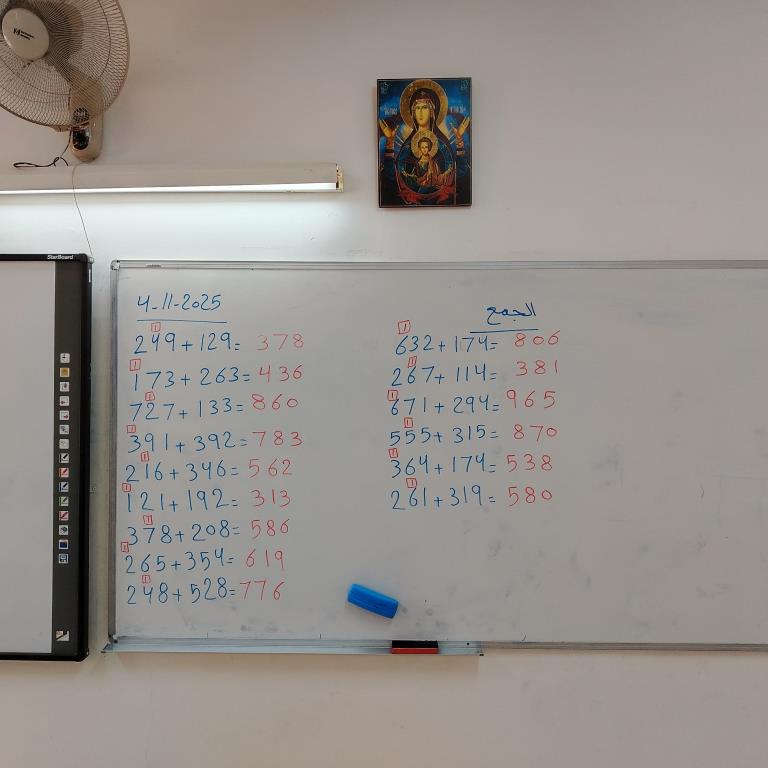 StarBoard
4-11-2025
1
249+129= 378
1
173+263=436
1
727+133=860
1
391+392=783
1
216+346=562
1
121+192=313
1
378+208=586
1
265+354=619
1
248+528=776
الجمع
1
632+174=806
1
267+114=381
1
671+294=965
1
555+315=870
1
364+174=538
1
261+319=580